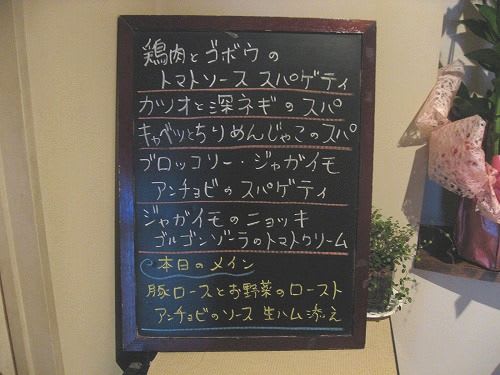 鶏肉とゴボウの
トマトソース スパゲティ
カツオと深ネギのスパ
キャベツとちりめんじゃこのスパ
ブロッコリー・ジャガイモ
アンチョビのスパゲティ
ジャガイモのニョッキ
ゴルゴンゾーラのトマトクリーム
本日のメイン
豚ロースとお野菜のロースト
アンチョビのソース 生ハム添え